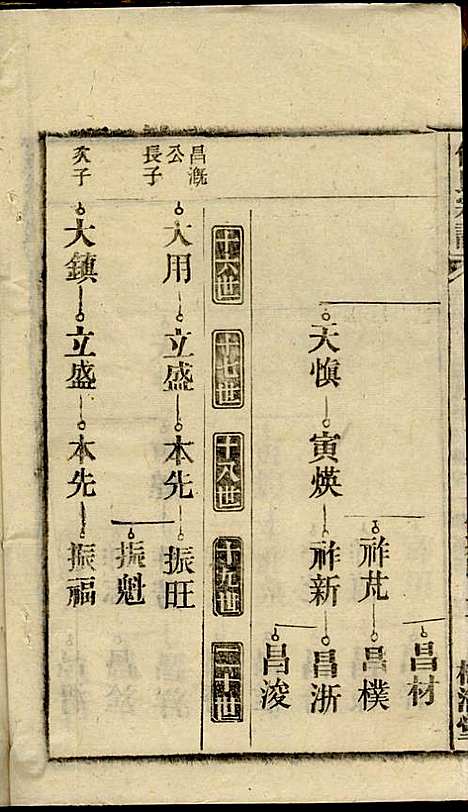 天慎
寅煐
祚芃
祚新
昌材
昌樸
昌浙
昌浚
十六世
十七世
十八世
十九世
二十世
昌漑
公
長子
大用
立盛
本先
振旺
振魁
次子
大鎮
立盛
本先
振福